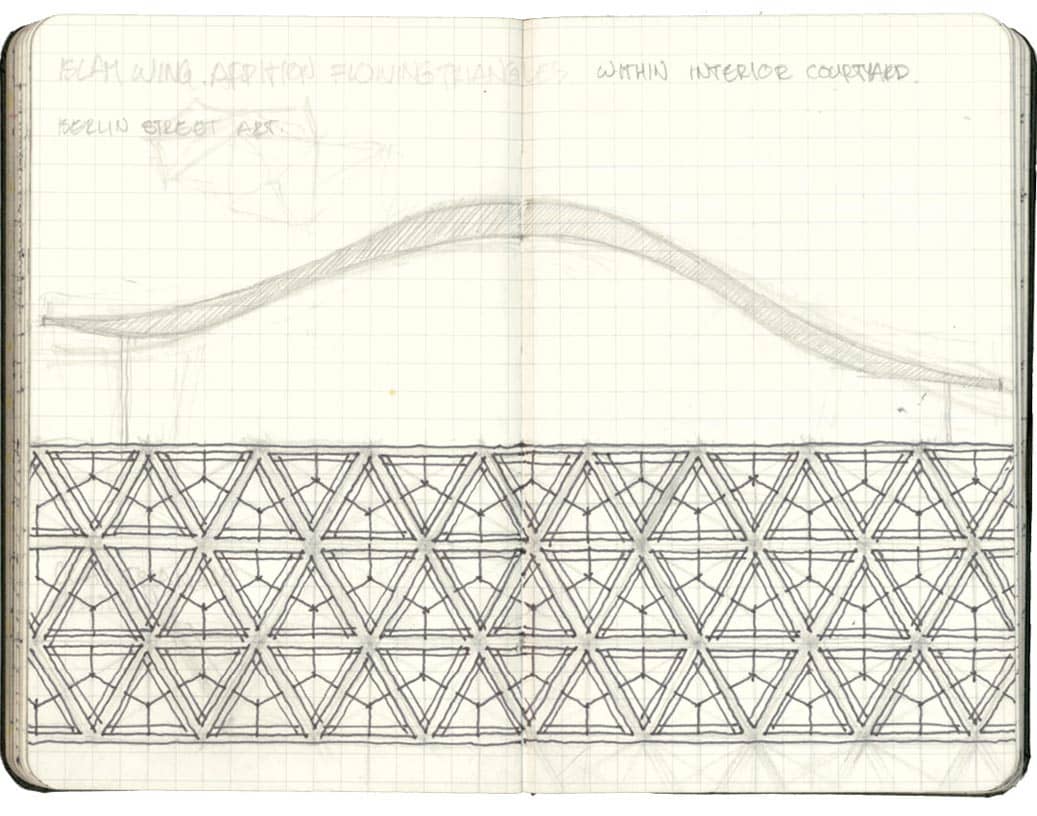 ISLAM WING ADDITION FLOWING TRIANGLES WITHIN INTERIOR COURTYARD.
BERLIN STREET ART.